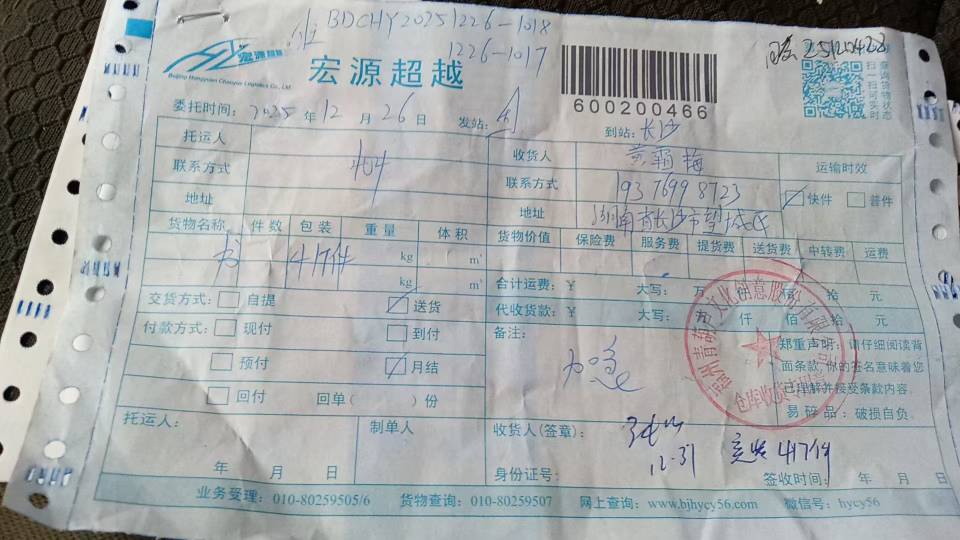 BDCHY20251226-1018
1226-1017
25120428
宏源超越
Beijing Hongyuan Chaoyue Logistics Co., Ltd.
宏源超越
600200466
查询货物状态
扫一扫可实时
委托时间: 2025 年 12 月 26 日 发站: 到站: 长沙
托运人 404 收货人 黄霸梅 运输时效
联系方式 联系方式 19376998723 快件 普件
地址 地址 湖南省长沙市望城区
货物名称 件数 包装 重量 体积 货物价值 保险费 服务费 提货费 送货费 中转费 运费
书 417件 kg m³
kg m³ 合计运费:¥ 大写: 万 仟 佰 拾 元
交货方式: 自提 送货 代收货款:¥ 大写: 万 仟 佰 拾 元
付款方式: 现付 到付 备注: 加急
预付 月结
回付 回单( )份
郑重声明:请仔细阅读背
面条款,你的签名意味着您
已理解并接受条款内容。
易碎品:破损自负。
托运人: 制单人 收货人(签章):
12.31 实收417件
年 月 日 身份证号: 签收时间: 年 月 日
业务受理:010-80259505/6 货物查询:010-80259507 网上查询:www.bjhycy56.com 微信号:hycy56